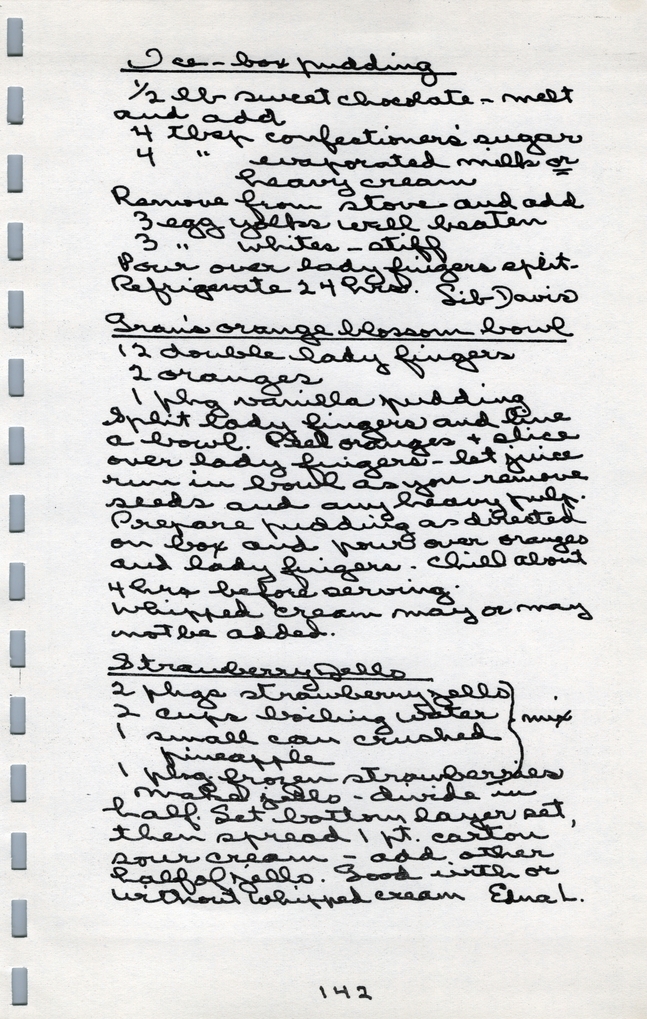 Ice-box pudding
1/2 lb sweet chocolate - melt
and add
4 tbsp confectioners' sugar
4 " evaporated milk or
heavy cream
Remove from stove and add
3 egg yolks well beaten
3 " whites - stiff
Pour over lady fingers split -
Refrigerate 24 hrs. Sib Davis
Gran's orange blossom bowl
12 double lady fingers
2 oranges
1 pkg vanilla pudding
Split lady fingers and line
a bowl. Peel oranges + slice
over lady fingers - let juice
run in bowl as you remove
seeds and any heavy pulp.
Prepare pudding as directed
on box and pour over oranges
and lady fingers. Chill about
4 hrs before serving.
Whipped cream may or may
not be added.
Strawberry Jello
2 pkgs strawberry jello
2 cups boiling water
mix
1 small can crushed
pineapple
1 pkg frozen strawberries
Make jello - divide in
half. Set bottom layer set,
then spread 1 pt. carton
sour cream - add other
half of jello. Good with or
without whipped cream Edna L.
142